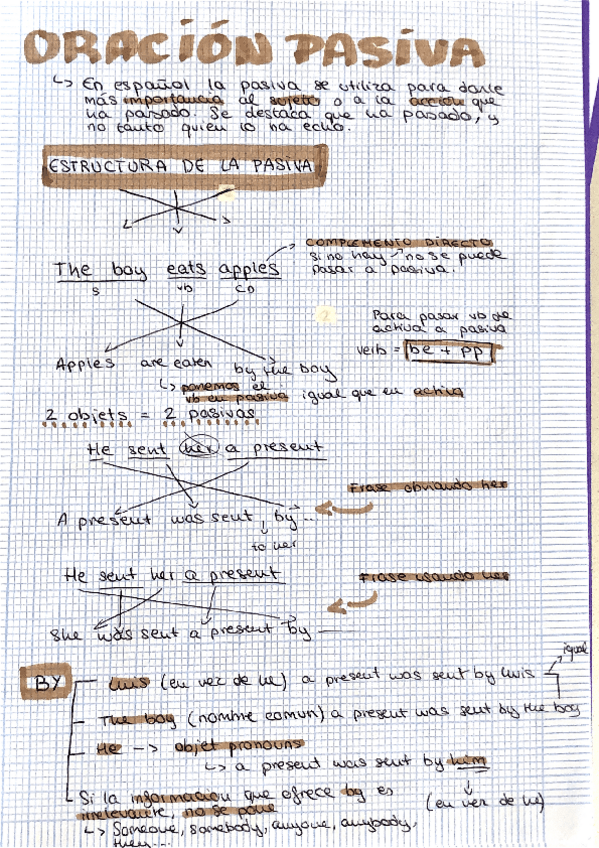 ORACIÓN PASIVA
↳ En español la pasiva se utiliza para darle
más importancia al sujeto o a la acción que
ha pasado. Se destaca que ha pasado, y
no tanto quien lo ha echo.
ESTRUCTURA DE LA PASIVA
COMPLEMENTO DIRECTO
si no hay → no se puede
pasar a pasiva.
The boy eats apples
S vb CD
Para pasar vb de
activa a pasiva
verb = be + pp
Apples are eaten by the boy
↳ ponemos el
vb en pasiva igual que en activa
2 objets = 2 pasivas
He sent her a present
Frase obviando her
A present was sent, by...
to her
He sent her a present
Frase usando her
She was sent a present by
BY
Luis (en vez de he) a present was sent by Luis
igual
The boy (nombre comun) a present was sent by the boy
He -> objet pronouns
↳ a present was sent by him
(en vez de he)
Si la informacion que ofrece by es
irrelevante, no se pone
↳ Someone, somebody, anyone, anybody,
them...